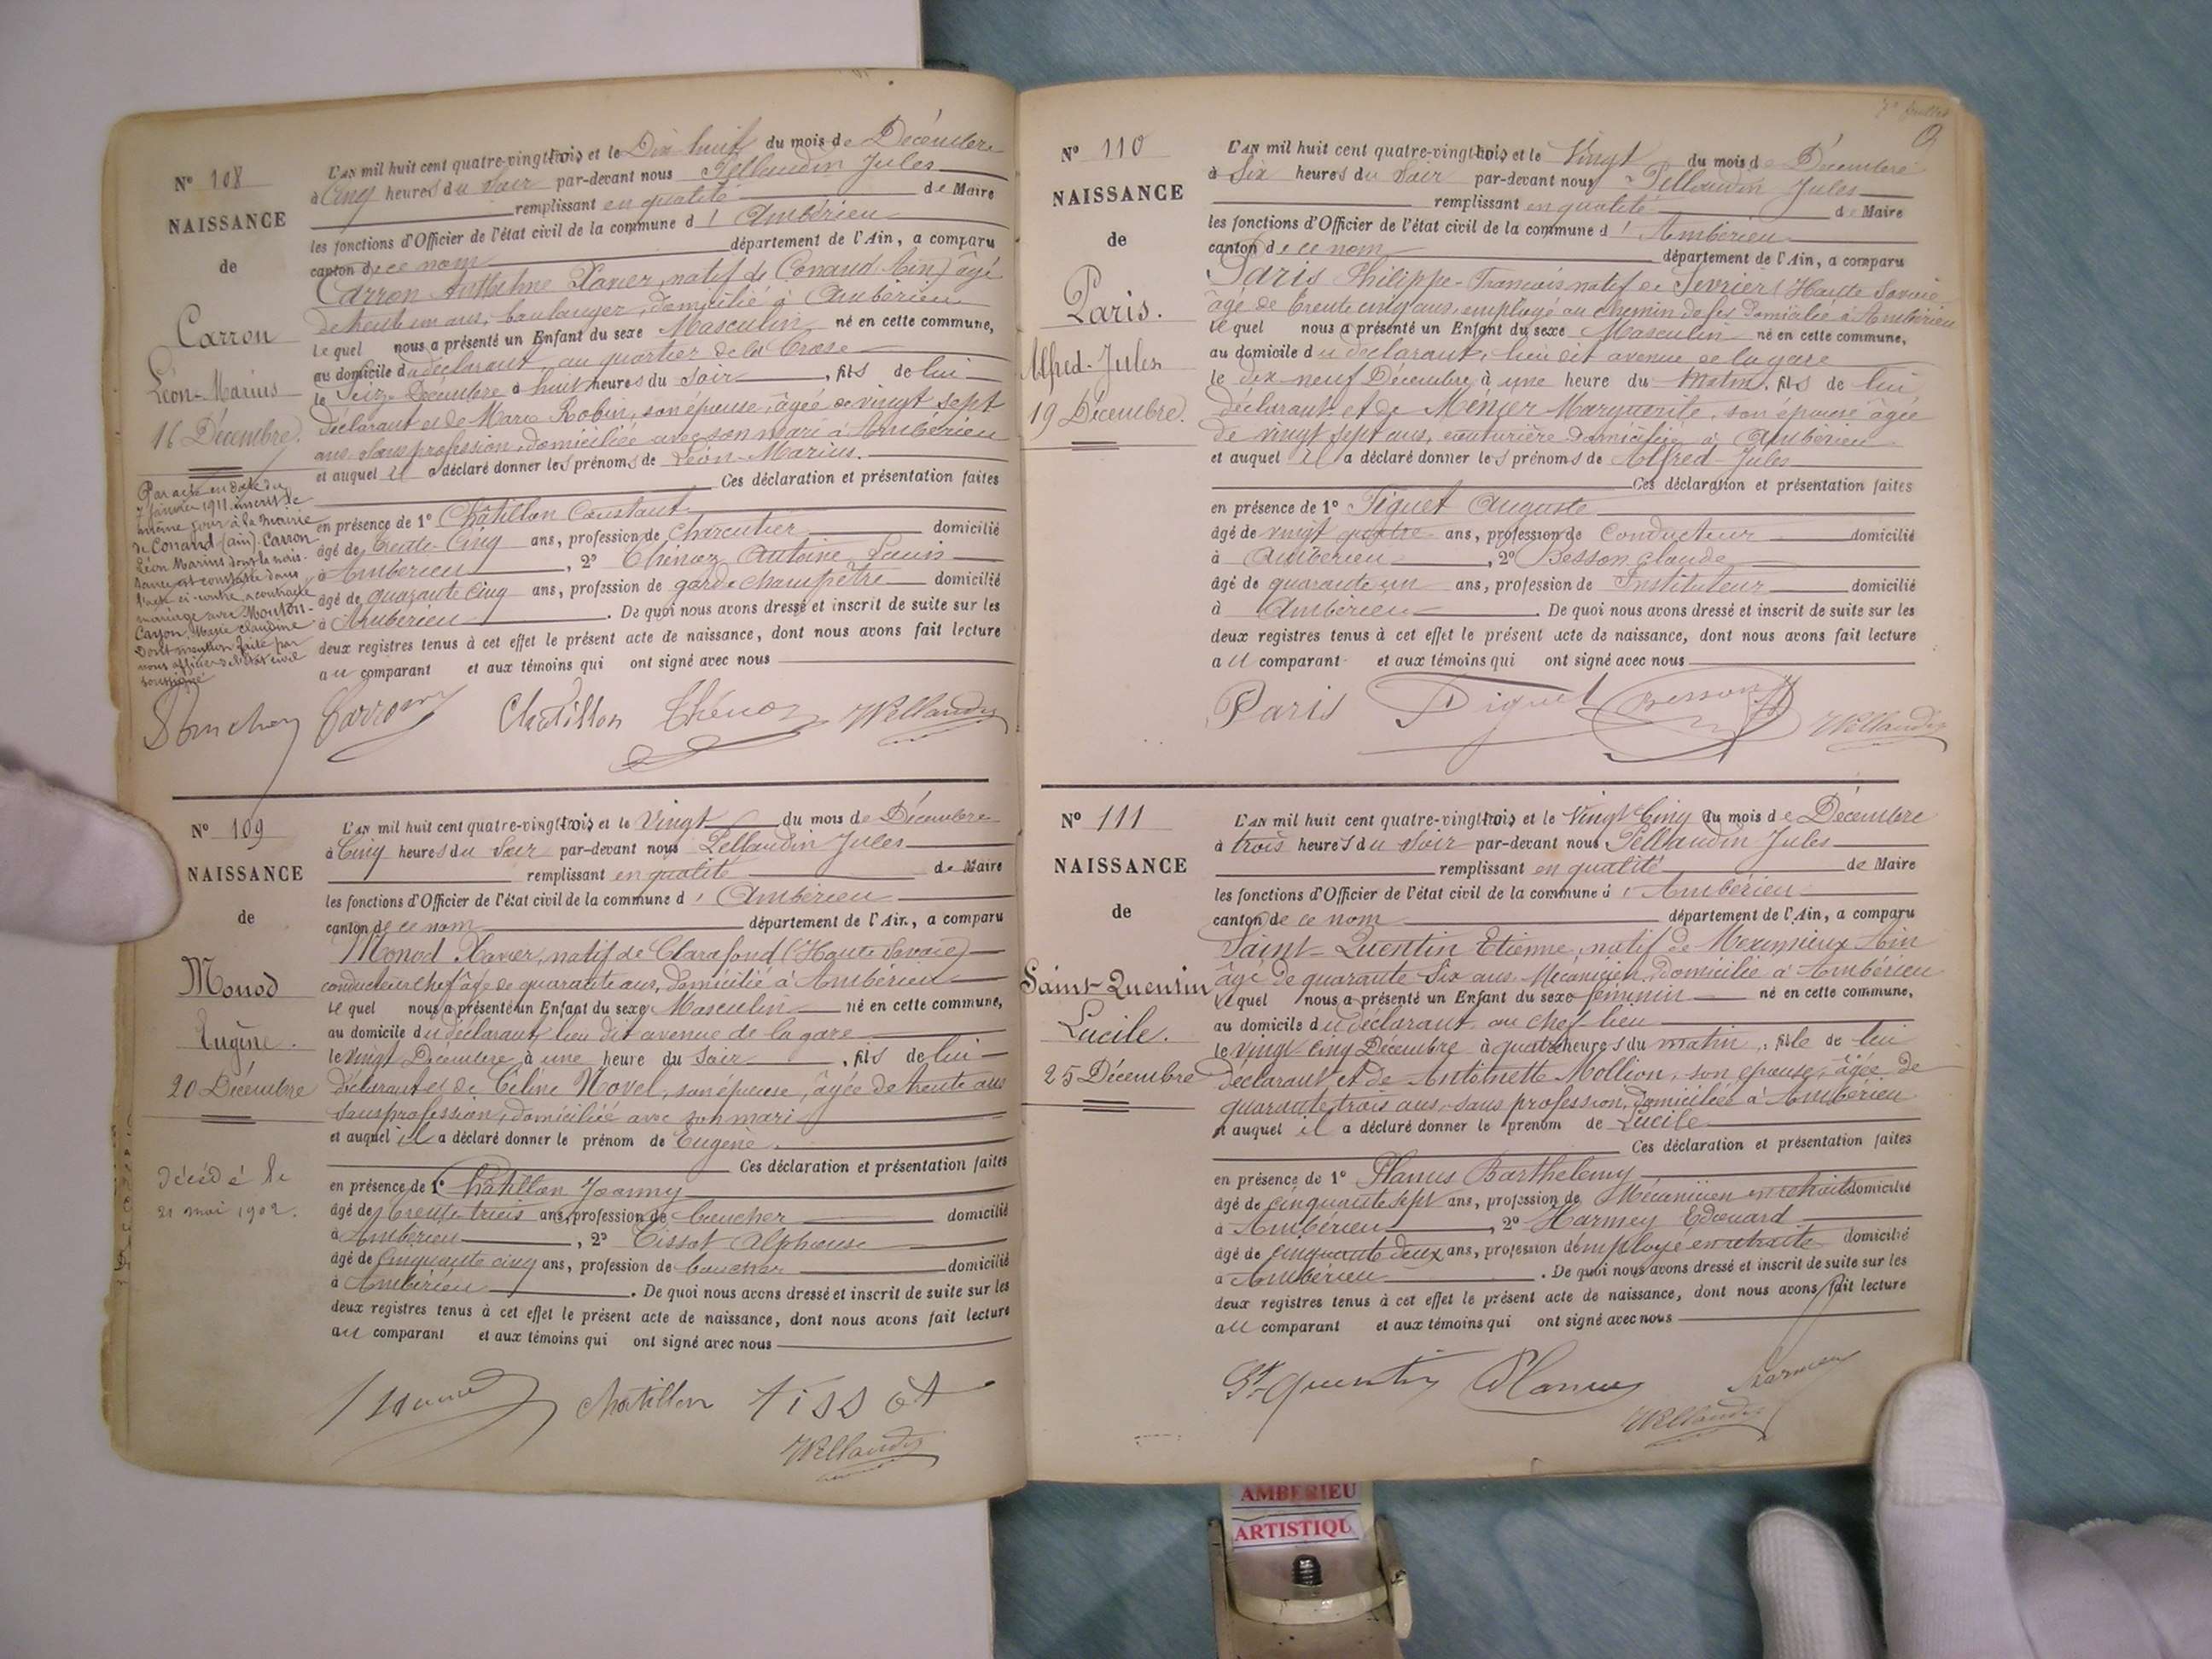 Nº 108
NAISSANCE
de
Carron
Léon-Marius
16 Décembre.
Par acte en date du
7 Janvier 1911 inscrit le
même jour à la mairie
de Conand (ain) Carron
Léon Marius dont la nais-
sance est constatée dans
l'acte ci-contre a contracté
mariage avec
Marie Claudine
Dont mention faite par
nous officier de l'état civil
soussigné
L'AN mil huit cent quatre-vingt-trois et le Dix huit du mois de Décembre
à Cinq heures du Soir par-devant nous Pellaudin Jules
remplissant en qualité de Maire
les fonctions d'Officier de l'état civil de la commune d'Ambérieu
canton de ce nom département de l'Ain, a comparu
Carron Anthelme Xavier, natif de Conand (Ain) âgé
de trente un ans, boulanger, domicilié à Ambérieu
Lequel nous a présenté un Enfant du sexe Masculin né en cette commune,
au domicile du déclarant, au quartier de la Crase
le Seize Décembre à huit heures du Soir, fils de lui
déclarant et de Marie Robin, son épouse, âgée de vingt sept
ans, sans profession, domiciliée avec son mari à Ambérieu
et auquel il a déclaré donner les prénoms de Léon-Marius.
Ces déclaration et présentation faites
en présence de 1º Châtillon Constant
âgé de trente-Cinq ans, profession de Charcutier domicilié
à Ambérieu, 2º Chénoz Antoine Louis
âgé de quarante Cinq ans, profession de garde champêtre domicilié
à Ambérieu. De quoi nous avons dressé et inscrit de suite sur les
deux registres tenus à cet effet le présent acte de naissance, dont nous avons fait lecture
au comparant et aux témoins qui ont signé avec nous
Carron Chatillon Chénoz JPellaudin
Nº 109
NAISSANCE
de
Monod
Eugène.
20 Décembre
Décédé le
21 mai 1902.
L'AN mil huit cent quatre-vingt-trois et le Vingt du mois de Décembre
à Cinq heures du Soir par-devant nous Pellaudin Jules
remplissant en qualité de Maire
les fonctions d'Officier de l'état civil de la commune d'Ambérieu
canton de ce nom département de l'Ain, a comparu
Monod Xavier, natif de Clarafond (Haute Savoie)
conducteur chef âgé de quarante ans, domicilié à Ambérieu
Lequel nous a présenté un Enfant du sexe Masculin né en cette commune,
au domicile du déclarant, lieu dit avenue de la gare
le Vingt Décembre à une heure du Soir, fils de lui
déclarant et de Céline Novel, son épouse, âgée de trente ans
sans profession, domiciliée avec son mari
et auquel il a déclaré donner le prénom de Eugène.
Ces déclaration et présentation faites
en présence de 1º Châtillon Joanny
âgé de trente-trois ans, profession de boucher domicilié
à Ambérieu, 2º Tissot Alphonse
âgé de Cinquante cinq ans, profession de boucher domicilié
à Ambérieu. De quoi nous avons dressé et inscrit de suite sur les
deux registres tenus à cet effet le présent acte de naissance, dont nous avons fait lecture
au comparant et aux témoins qui ont signé avec nous
Chatillon tissot
JPellaudin
7e feuillet
Nº 110
NAISSANCE
de
Paris.
Alfred-Jules
19 Décembre.
L'AN mil huit cent quatre-vingt-trois et le Vingt du mois de Décembre
à Six heures du Soir par-devant nous Pellaudin Jules
remplissant en qualité de Maire
les fonctions d'Officier de l'état civil de la commune d'Ambérieu
canton de ce nom département de l'Ain, a comparu
Paris Philippe-François natif de Sevrier (Haute Savoie
âgé de trente cinq ans, employé au chemin de fer domicilié à Ambérieu
Lequel nous a présenté un Enfant du sexe Masculin né en cette commune,
au domicile du déclarant, lieu dit avenue de la gare
le dix-neuf Décembre à une heure du Matin, fils de lui
déclarant et de Menier Marguerite, son épouse âgée
de vingt sept ans, couturière domiciliée à Ambérieu
et auquel il a déclaré donner les prénoms de Alfred-Jules
Ces déclaration et présentation faites
en présence de 1º Piguet Auguste
âgé de vingt quatre ans, profession de Conducteur domicilié
à Ambérieu, 2º Besson Claude
âgé de quarante un ans, profession de Instituteur domicilié
à Ambérieu. De quoi nous avons dressé et inscrit de suite sur les
deux registres tenus à cet effet le présent acte de naissance, dont nous avons fait lecture
au comparant et aux témoins qui ont signé avec nous
Paris Piguet Besson JPellaudin
Nº 111
NAISSANCE
de
Saint-Quentin
Lucile.
25 Décembre
L'AN mil huit cent quatre-vingt-trois et le Vingt Cinq du mois de Décembre
à trois heures du Soir par-devant nous Pellaudin Jules
remplissant en qualité de Maire
les fonctions d'Officier de l'état civil de la commune d'Ambérieu
canton de ce nom département de l'Ain, a comparu
Saint-Quentin Etienne, natif de Meximieux Ain
âgé de quarante Six ans, Mécanicien, domicilié à Ambérieu
Lequel nous a présenté un Enfant du sexe féminin né en cette commune,
au domicile du déclarant au chef-lieu
le vingt-cinq Décembre à quatre heures du matin, fille de lui
déclarant et de Antoinette Mollion, son épouse, âgée de
quarante trois ans, sans profession, domiciliée à Ambérieu
et auquel il a déclaré donner le prénom de Lucile
Ces déclaration et présentation faites
en présence de 1º Planus Barthelemy
âgé de cinquante sept ans, profession de Mécanicien en retraite domicilié
à Ambérieu, 2º Harmey Edouard
âgé de cinquante deux ans, profession d'employé en retraite domicilié
à Ambérieu. De quoi nous avons dressé et inscrit de suite sur les
deux registres tenus à cet effet le présent acte de naissance, dont nous avons fait lecture
au comparant et aux témoins qui ont signé avec nous
St-quentin Planus Harmey
JPellaudin
AMBERIEU
ARTISTIQU